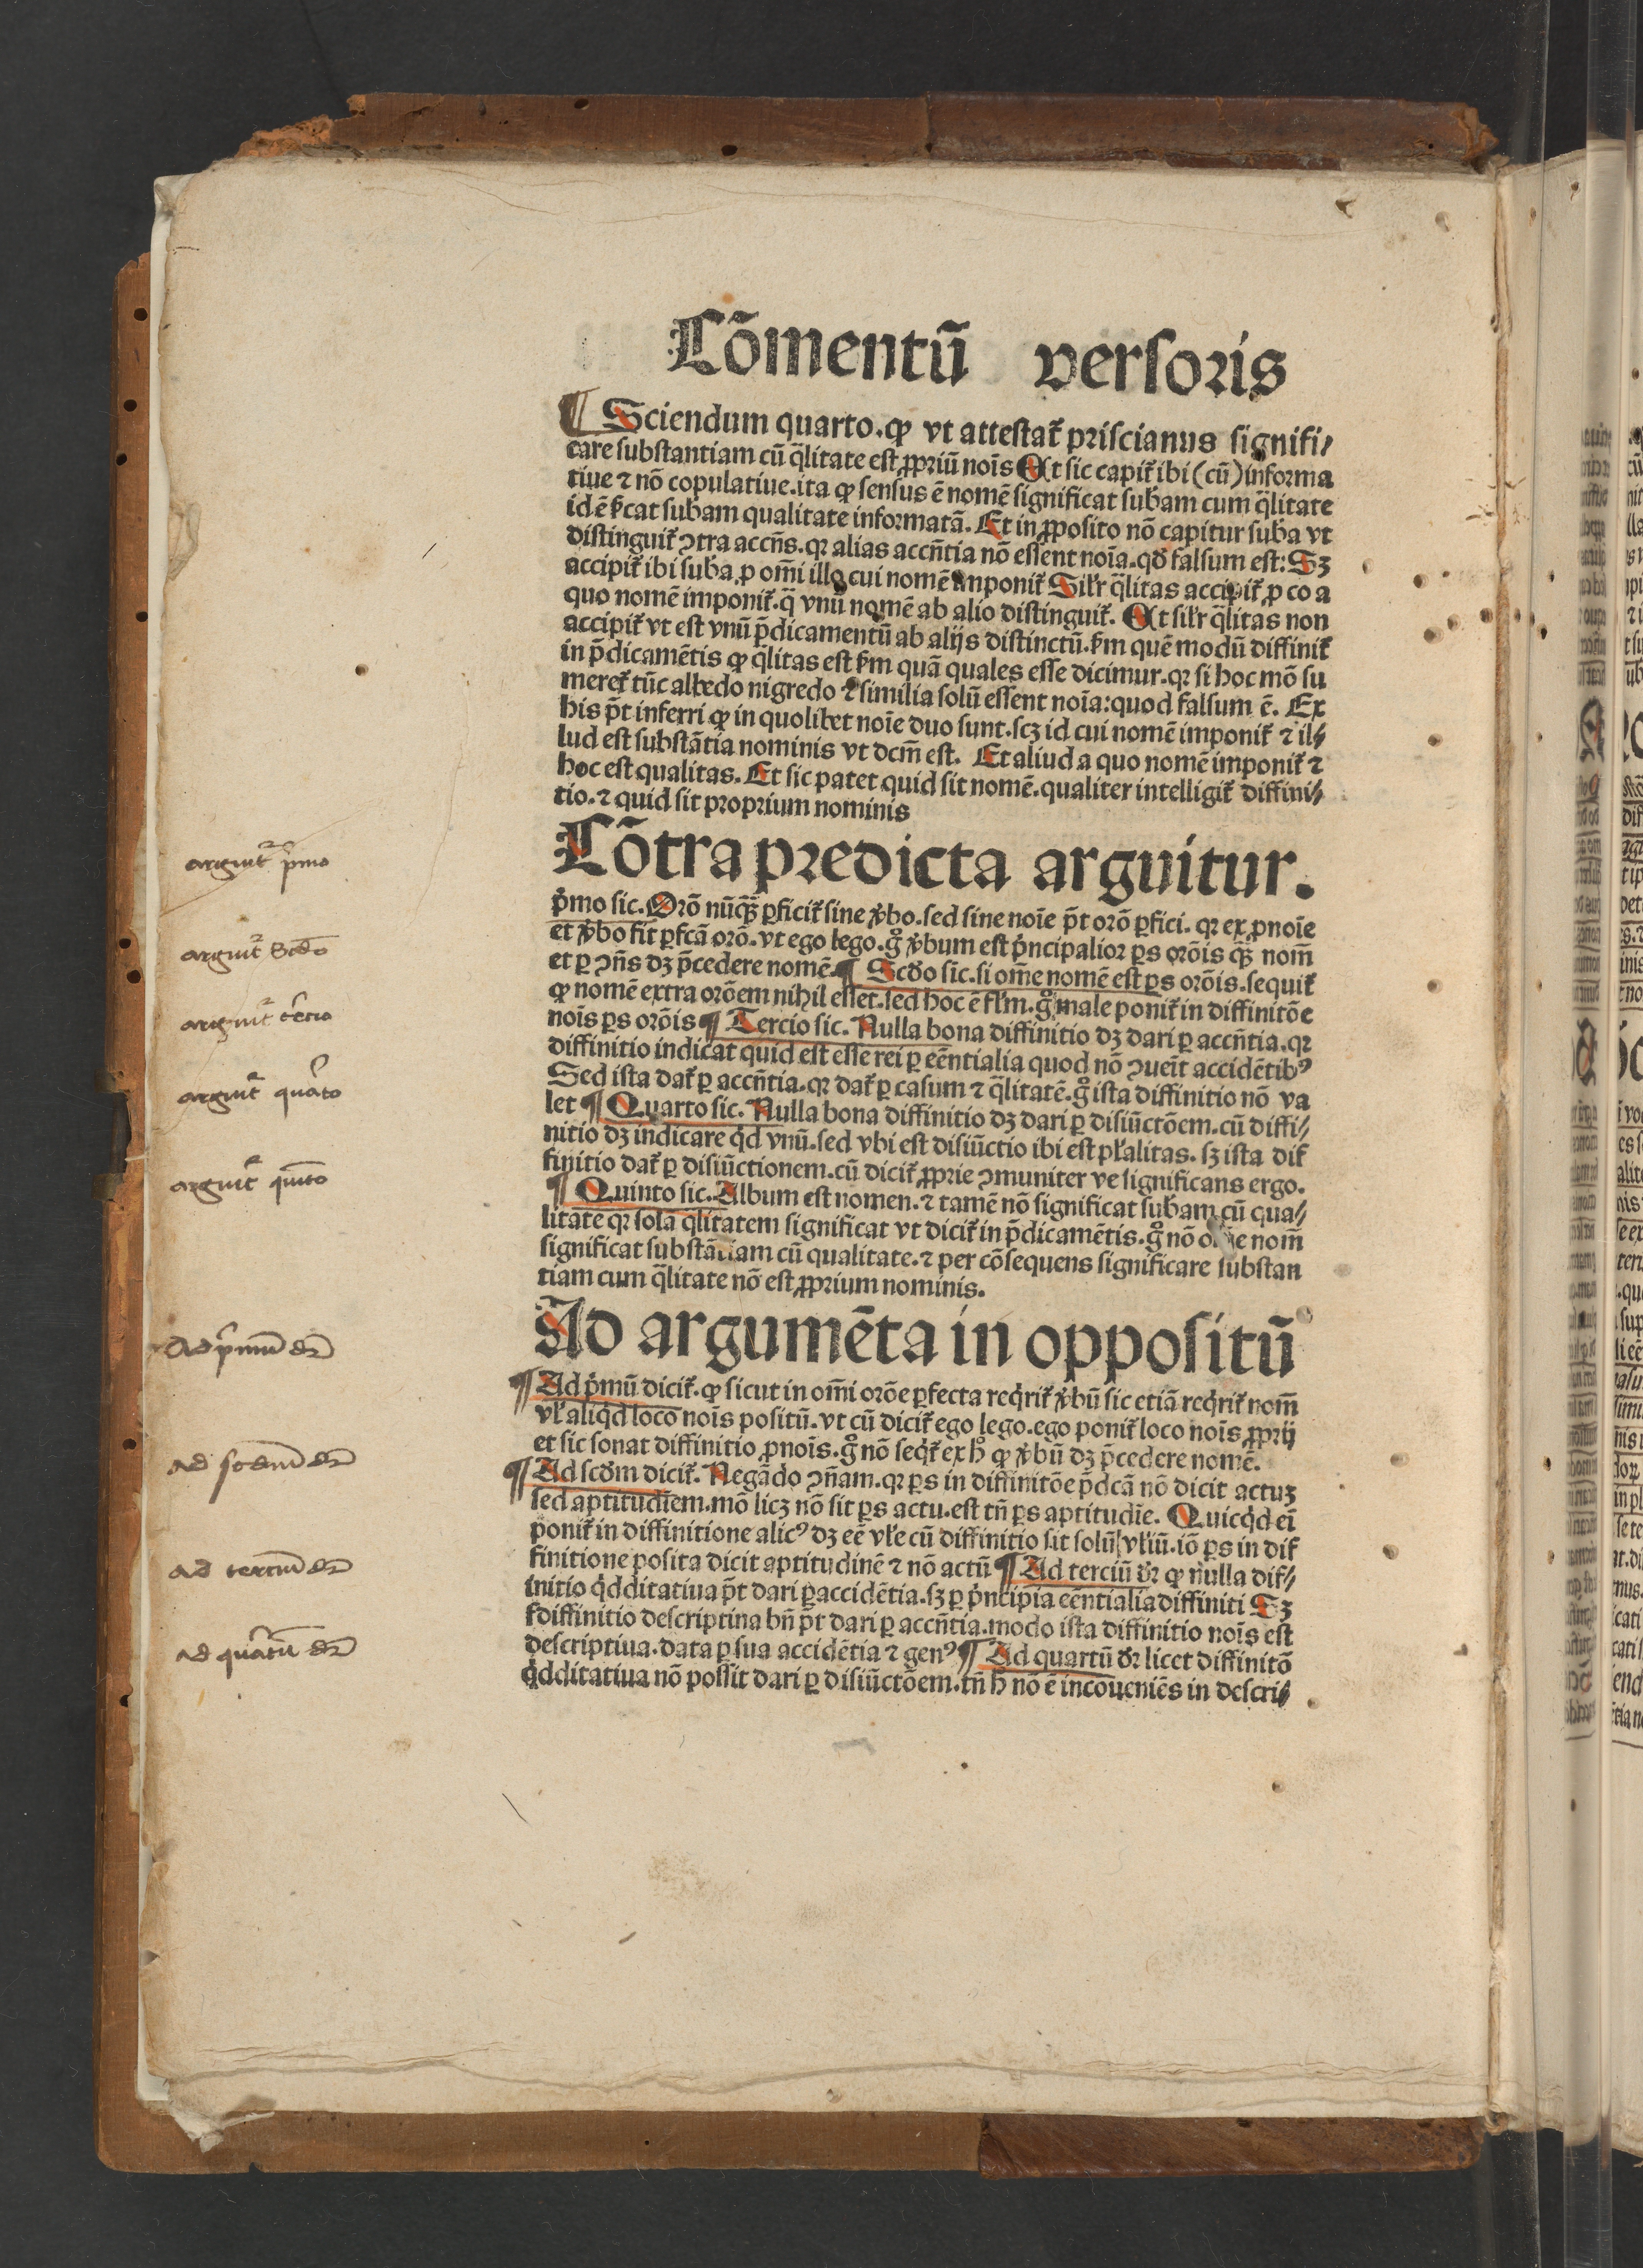 Cõmentũ versoris
¶ Sciendum quarto. ꝙ vt attestat̃ priscianus signifi⸗
care substantiam cũ q̃litate est ꝓpriũ nois̃ At sic capit̃ ibi (cũ) informa
tiue ⁊ nõ copulatiue. ita ꝙ sensus ẽ nomẽ significat sub̃am cum q̃litate
id ẽ ẜcat sub̃am qualitate informatã. Et in ꝓposito nõ capitur sub̃a vt
distinguit̃ ꝯtra accñs. qꝛ alias accñtia nõ essent noĩa. qđ falsum est: Sꝫ
accipit̃ ibi sub̃a ꝓ om̃i illo cui nomẽ imponit̃ Sil̃r q̃litas accipit̃ ꝓ eo a
quo nomẽ imponit̃. q̃ vnũ nomẽ ab alio distinguit̃. At sil̃r q̃litas non
accipit̃ vt est vnũ p̃dicamentũ ab alijs distinctũ. ẜm quẽ modũ diffinit̃
in p̃dicamẽtis ꝙ q̃litas est ẜm quã quales esse dicimur. qꝛ si hoc mõ su
meret̃ tũc albedo nigredo ⁊ similia solũ essent noĩa: quod falsum ẽ. Ex
his p̃t inferri ꝙ in quolibet noĩe duo sunt. scꝫ id cui nomẽ imponit̃ ⁊ il⸗
lud est substãtia nominis vt dcm̃ est. Et aliud a quo nomẽ imponit̃ ⁊
hoc est qualitas. Et sic patet quid sit nomẽ. qualiter intelligit̃ diffini⸗
tio. ⁊ quid sit proprium nominis
Cõtra predicta arguitur.
arguit̃ pͥmo
pͥmo sic. Orõ nũqꝫ̃ ꝑficit̃ sine v̾bo. sed sine noĩe p̃t orõ ꝑfici. qꝛ ex ꝓnoĩe
et v̾bo fit ꝑfcã orõ. vt ego lego. gͦ v̾bum est pͥncipalior ꝑs orõis qꝫ̃ nom̃
arguit̃ Scdo
et ꝑ ꝯñs dꝫ p̃cedere nomẽ. ¶ Scđo sic. si om̃e nomẽ est ꝑs orõis. sequit̃
ꝙ nomẽ extra orõem nihil esset. sed hoc ẽ fl̃m. gͦ male ponit̃ in diffinitõe
arguit̃ tercio
nois̃ ꝑs orõis ¶ Tercio sic. Nulla bona diffinitio dꝫ dari ꝑ accñtia. qꝛ
diffinitio indicat quid est esse rei ꝑ eẽntialia quod nõ ꝯueit̃ accidẽtibꝰ
Sed ista dat̃ ꝑ accñtia. qꝛ dat̃ ꝑ casum ⁊ q̃litatẽ. gͦ ista diffinitio nõ va
arguit̃ quarto
let ¶ Quarto sic. Nulla bona diffinitio dꝫ dari ꝑ disiũctõem. cũ diffi⸗
nitio dꝫ indicare qͥd vnũ. sed vbi est disiũctio ibi est pl̃alitas. sꝫ ista dif
finitio dat̃ ꝑ disiũctionem. cũ dicit̃ ꝓprie ꝯmuniter ve significans ergo.
arguit̃ quinto
¶ Quinto sic. Album est nomen. ⁊ tamẽ nõ significat sub̃am cũ qua⸗
litate qꝛ solã q̃litatem significat vt dicit̃ in p̃dicamẽtis. gͦ nõ nom̃
significat substãtiam cũ qualitate. ⁊ per cõsequens significare substan
tiam cum q̃litate nõ est ꝓprium nominis.
Ad argumẽta in oppositũ
Ad pͥmũ dr̃
¶ Ad pͥmũ dicit̃. ꝙ sicut in om̃i orõe ꝑfecta reqͥrit̃ v̾bũ sic etiã reqͥrit̃ nom̃
vl̃ aliqͥd loco nois̃ positũ. vt cũ dicit̃ ego lego. ego ponit̃ loco nois̃ ꝓprij
et sic sonat diffinitio ꝓnois̃. gͦ nõ seqͥt̃ ex hͦ ꝙ v̾bũ dꝫ p̃cedere nomẽ.
ad scdum dr̃
¶ Ad scđm dicit̃. Negãdo ꝯñam. qꝛ ꝑs in diffinitõe p̃dcã nõ dicit actuꝫ
sed aptitudiẽm. mõ licꝫ nõ sit ꝑs actu. est tñ ꝑs aptitudĩe. Quicqͥd eĩ
ponit̃ in diffinitione alicꝰ dꝫ eẽ vl̃e cũ diffinitio sit solũ vl̃iũ. iõ ꝑs in dif
ad tercium dr̃
finitione posita dicit aptitudinẽ ⁊ nõ actũ ¶ Ad terciũ đꝛ ꝙ nulla dif⸗
initio qͥdditatiua p̃t dari ꝑ accidẽtia. sꝫ ꝑ pͥncipia eẽntialia diffiniti Sꝫ
diffinitio descriptiua bñ p̃t dari ꝑ accñtia. modo ista diffinitio nois̃ est
ad quartũ dr̃
descriptiua. data ꝑ sua accidẽtia ⁊ genꝰ ¶ Ad quartũ đꝛ licet diffinitõ
qͥdditatiua nõ possit dari ꝑ disiũctõem. tñ h̃ nõ ẽ incoueniẽs in descri⸗